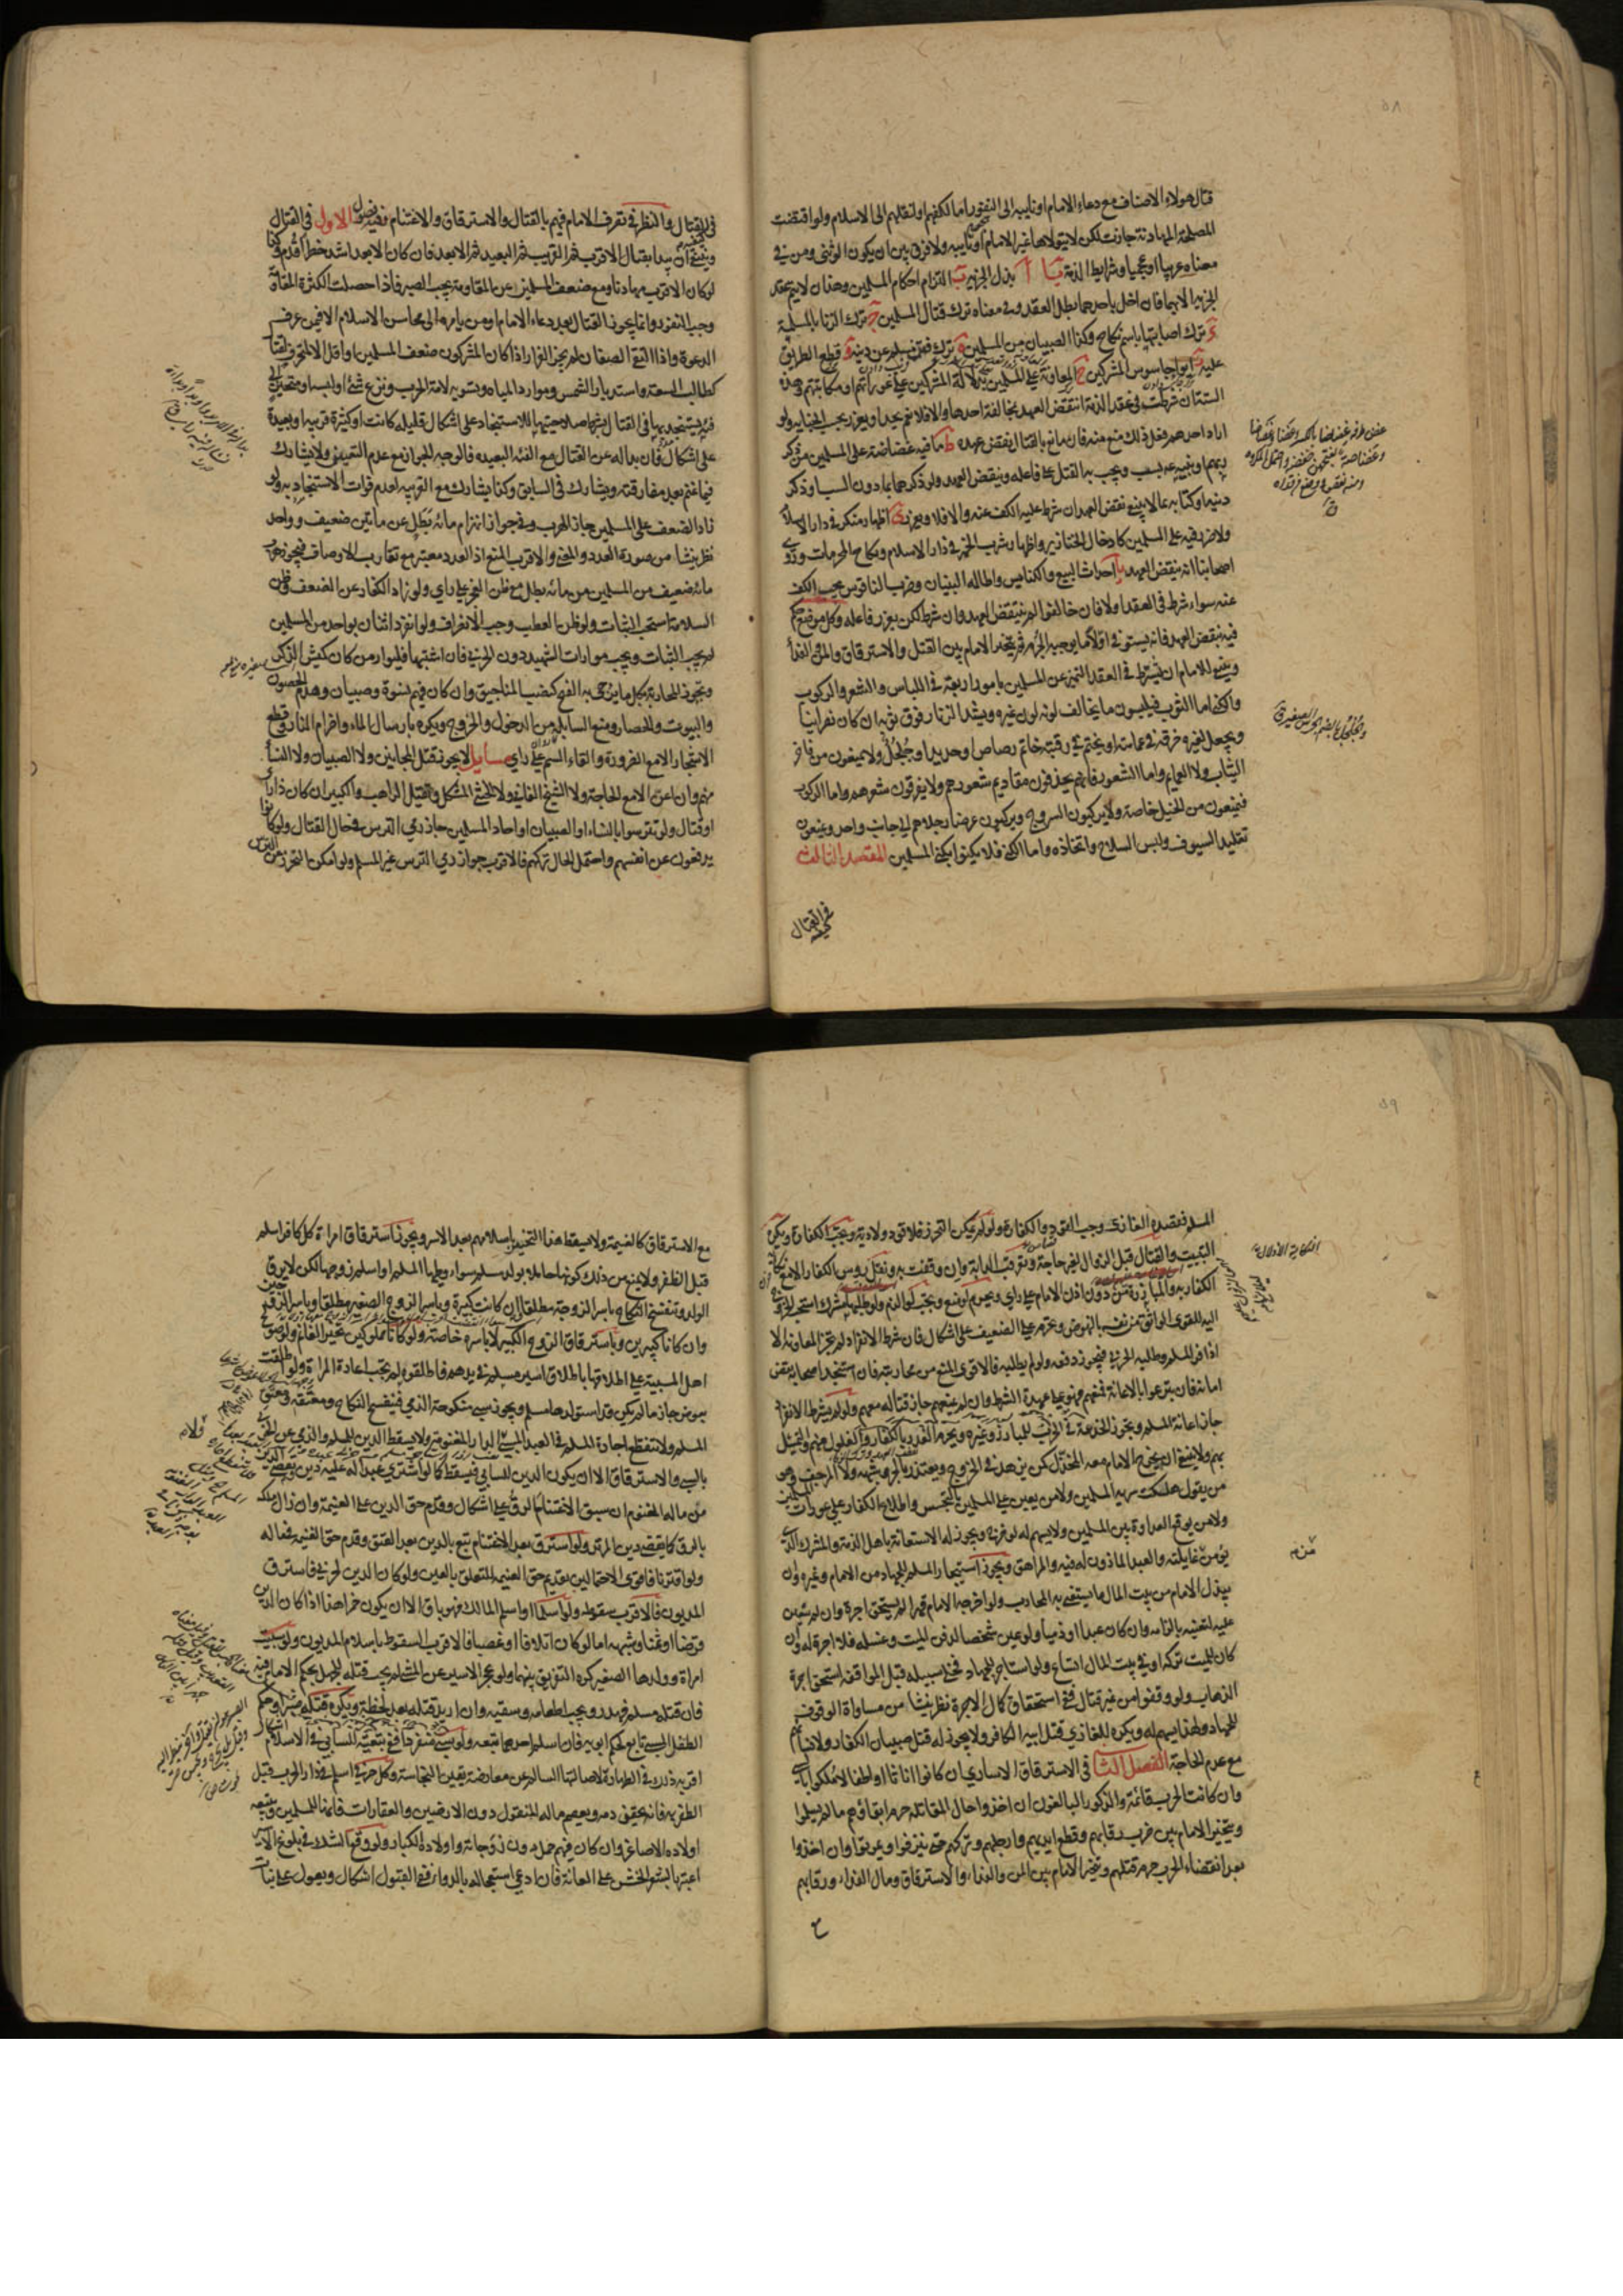 قتال هولاء الاصناف مع دعاء الامام او نايبه الى النفور اما لكفهم او لنقلهم الى الاسلام ولو اقتضت
المصلحة المهادنة جازت لكن لا يتولاها غير الامام او نايبه ولا فرق بين ان يكون الوثنى ومن فى
معناه عربيا او عجميا وشرايط الذمة يا ا بذل الجزيه ب التزام احكام المسلمين وهذان لا يتم عقد
الجزيه الا بهما فان اخل باحدهما بطل العقد وفى معناه ترك قتال المسلمين ج ترك الزنا بالمسلمة
د ترك اصابتها باسم نكاح وكذا الصبيان من المسلمين ه ترك فتن مسلم عن دينه و قطع الطريق
عليه ز ايواء جاسوس المشركين ح المعاونة على المسلمين بدلالة المشركين على عوراتهم او مكاتبتهم وهذه
الستة ان شرطت فى عقد الذمة انتقض العهد بمخالفة احدها والا فلا نعم يحد او يعزر بحسب الجنايه ولو
اراد احدهم فعل ذلك منع منه فان مانع بالقتال نقض عهده ط ما فيه غضاضة على المسلمين من ذكر
ربهم او نبيه ع بسب ويجب به القتل على فاعله وينقض العهد ولو ذكرهما بما دون السب او ذكر
دينه او كتابه بما لا ينبغى نقض العهد ان شرط عليه الكف عنه والا فلا ويعزر ى اظهار منكر فى دار الاسلام
ولا ضرر فيه على المسلمين كادخال الخنازير واظهار شرب الخمر فى دار الاسلام ونكاح المحرمات وروى
اصحابنا انه ينقض العهد يا احداث البيع والكنايس واطالة البنيان وضرب الناقوس يجب الكف
عنه سواء شرط فى العقد اولا فان خالفوا لم ينتقض العهد وان شرط لكن يعزر فاعله وكل موضع حكم
فيه بنقض العهد فانه يستوفى اولا ما يوجبه الجرم ثم يتخير الامام بين القتل والاسترقاق والمن والفدا
وينبغى للامام ان يشترط فى العقد التميز عن المسلمين بامور اربعة فى اللباس والشعر والركوب
والكنى اما الثوب فيلبسون ما يخالف لونه لون غيره ويشد الزنار فوق ثوبه ان كان نصرانيا
ويجعل لغيره خرقة فى عمامته او يختم فى رقبته خاتم رصاص او حديد او جلجل ولا يمنعون من فاخر
الثياب ولا العمايم واما الشعور فانهم يحذفون مقاديم شعورهم ولا يفرقون شعرهم واما الركوب
فيمنعون من الخيل خاصة ولا يركبون السروج ويركبون عرضا رجلاهم الى جانب واحد ويمنعون
تقليد السيوف ولبس السلاح واتخاذه واما الكنى فلا يكنوا بكنى المسلمين المقصد الثالث
فى القتال
فى القتال والنظر فى تصرف الامام فيهم بالقتال والاسترقاق والاغتنام ففيه فصول الاول فى القتال
وينبغى ان يبدا بقتال الاقرب ثم القريب ثم البعيد ثم الابعد فان كان الابعد اشد خطرا قدم وكذا
لو كان الاقرب مهادنا ومع ضعف المسلمين عن المقاومة يجب الصبر فاذا حصلت الكثرة المقاومة
وجب النفور وانما يجوز القتال بعد دعاء الامام او من يامره الى محاسن الاسلام الا فيمن عرف
الدعوة واذا التقى الصفان لم يجز الفرار اذا كان المشركون ضعف المسلمين او اقل الا لمتحرف لقتال
كطالب السعة واستدبار الشمس وموارد المياه وتسويه لامة الحرب ونزع شئ او لبسه او متحيز الى
فئة يستنجد بها فى القتال بشرط صلاحيتها للاستنجاد على اشكال قليله كانت او كثيرة قريبه او بعيدة
على اشكال فان بدا له عن القتال مع الفئه البعيده فالوجه الجواز مع عدم التعيين ولا يشارك
فيما غنم بعد مفارقته ويشارك فى السابق وكذا يشارك مع القريبه لعدم فوات الاستنجاد به ولو
زاد الضعف على المسلمين جاز الهرب وفى جواز انهزام مائة بطل عن مائتين ضعيف وواحد
نظر ينشا من صورة العدد والمعنى والاقرب المنع اذ العدد معتبر مع تقارب الاوصاف فيجوز هرب
مائة ضعيف من المسلمين من مائة بطل مع ظن العجز على راى ولو زاد الكفار عن الضعف وظن
السلامة استحب الثبات ولو ظن العطب وجب الانصراف ولو انفرد اثنان بواحد من المسلمين
لم يجب الثبات ويجب موارات الشهيد دون الحربى فان اشتبها فليوار من كان كميش الذكر
وتجوز المحاربة بكل ما يرجى به الفتح كنصب المناجيق وان كان فيهم نسوة وصبيان وهدم الحصون
والبيوت والحصار ومنع السابله من الدخول والخروج ويكره بارسال الماء واضرام النار وقطع
الاشجار الا مع الضرورة والقاء السم على راى مسايل لا يجوز قتل المجانين ولا الصبيان ولا النسا
منهم وان اعن الا مع الحاجة ولا الشيخ الفانى ولا الخنثى المشكل ويقتل الراهب والكبير ان كان ذا راى
او قتال ولو تترسوا بالنساء او الصبيان او احاد المسلمين جاز رمى الترس فى حال القتال ولو كانوا
يدفعون عن انفسهم واحتمل الحال تركهم فالاقرب جواز رمى الترس غير المسلم ولو امكن التحرز عن الترس
المسلم فقصده الغازى وجب القود والكفارة ولو لم يمكن التحرز فلا قود ولا دية وتجب الكفارة ويكره
التبييت والقتال قبل الزوال لغير حاجة وتعرقب الدابة وان وقفت به ونقل روس الكفار الا مع نكاية
الكفار به والمبارزة من دون اذن الامام على راى ويحرم لو منع وتجب لو الزم ولو طلبها مشرك استحب الخروج
اليه للقوى الواثق من نفسه بالنهوض وتحرم على الضعيف على اشكال فان شرط الانفراد لم تجز المعاونة الا
اذا فر المسلم وطلبه الحربى فيجوز دفعه ولو لم يطلبه فالاقوى المنع من محاربته فان استنجد اصحابه نقض
امانه فان تبرعوا بالاعانة فمنعهم فهو على عهدة الشرط وان لم يمنعهم جاز قتاله معهم ولو لم يشرط الانفراد
جاز اعانة المسلم وتجوز الخدعة فى الحرب للمبارز وغيره ويحرم الغدر بالكفار والغلول منهم والتمثيل
بهم ولا ينبغى ان يخرج الامام معه المخذل كمن يزهد فى الخروج ويعتذر بالحر وشبهه ولا المرجف وهو
من يقول هلكت سرية المسلمين ولا من يعين على المسلمين بالتجسس واطلاع الكفار على عورات المسلمين
ولا من يوقع العداوة بين المسلمين ولا يسهم له لو خرج ويجوز له الاستعانة باهل الذمة والمشرك الذى
يؤمن غايلته والعبد الماذون له فيه والمراهق ويجوز استيجار المسلم للجهاد من الامام وغيره وان
يبذل الامام من بيت المال ما يستعين به المحارب ولو اخرجه الامام قهرا لم يستحق اجرة وان لم يتعين
عليه لتعينه بالزامه وان كان عبدا او ذميا ولو عين شخصا لدفن الميت وغسله فلا اجرة له وان
كان للميت تركة او فى بيت المال اتساع ولو استاجر للجهاد فخلى سبيله قبل المواقفه استحق اجرة
الذهاب ولو وقفوا من غير قتال ففى استحقاق كمال الاجرة نظر ينشا من مساواة الوقوف
للجهاد ولهذا يسهم له ويكره للغازى قتل ابيه الكافر ولا يجوز له قتل صبيان الكفار ولا نسائهم
مع عدم الحاجة الفصل الثانى فى الاسترقاق الاسارى ان كانوا اناثا او اطفالا ملكوا بالسبى
وان كانت الحرب قائمة والذكور البالغون ان اخذوا حال المقاتلة حرم ابقاؤهم ما لم يسلموا
ويتخير الامام بين ضرب رقابهم وقطع ايديهم وارجلهم وتركهم حتى ينزفوا ويموتوا وان اخذوا
بعد انقضاء الحرب حرم قتلهم وتخير الامام بين المن والفداء والاسترقاق ومال الفداء ورقابهم
مع الاسترقاق كالغنيمة ولا يسقط هذا التخيير باسلامهم بعد الاسر ويجوز استرقاق امراة كل كافر اسلم
قبل الظفر ولا يمنع من ذلك كونها حاملا بولد مسلم سواء وطئها المسلم او اسلم زوجها لكن لا يرق
الولد وينفسخ النكاح باسر الزوجة مطلقا وان كانت كبيرة وباسر الزوج الصغير مطلقا وباسر الزوجين
وان كانا كبيرين وباسترقاق الزوج الكبير لا باسره خاصة ولو كانا مملوكين تخير الغانم ولو صولح
اهل المسبية على اطلاقها باطلاق اسير مسلم فى يدهم فاطلقوه لم يجب اعادة المراة ولو اطلقت
بعوض جاز ما لم يكن قد استولدها مسلم ويجوز سبى منكوحة الذمى فينفسخ النكاح ومعتقه ومعتق
المسلم ولا تنقطع اجارة المسلم فى العبد المسبى والدار المغنومة ولا يسقط الدين للمسلم والذمى عن الحربى
بالسبى والاسترقاق الا ان يكون الدين للسابى فيسقط كما لو اشترى عبدا له عليه دين ويقضى الدين
من ماله المغنوم ان سبق الاغتنام الرق على اشكال وقدم حق الدين على الغنيمة وان زال ملكه
بالرق كما يقضى دين المرتد ولو استرق بعد الاغتنام تبع بالدين بعد العتق وقدم حق الغنيمة فى ماله
ولو اقترنا فاقوى الاحتمالين تقديم حق الغنيمة المتعلق بالعين ولو كان الدين لحربى فاسترق
المديون فالاقرب سقوطه ولو اسلما او اسلم المالك فهو باق الا ان يكون خمرا هذا اذا كان الدين
قرضا او ثمنا وشبهه اما لو كان اتلافا او غصبا فالاقرب السقوط باسلام المديون ولو سبيت
امراة وولدها الصغير كره التفريق بينهما ولو عجز الاسير عن المشى لم يجب قتله للجهل بحكم الامام فيه
فان قتله مسلم فهدر ويجب اطعامه وسقيه وان اريد قتله بعد لحظة ويكره قتله صبرا وحكم
الطفل المسبى تابع لحكم ابويه فان اسلم احدهما تبعه ولو سبى منفردا ففى تبعيته للسابى فى الاسلام اشكال
اقربه ذلك فى الطهارة لاصالتها السالم عن معارضة يقين النجاسة وكل حربى اسلم فى دار الحرب قبل
الظفر به فانه يحقن دمه ويعصم ماله المنقول دون الارضين والعقارات فانها للمسلمين ويتبعه
اولاده الاصاغر وان كان فيهم حمل دون زوجاته واولاده الكبار ولو وقع الشك فى بلوغ الاسير
اعتبر بالشعر الخشن على العانة فان ادعى استعجاله بالدواء ففى القبول اشكال ويعول على نبات